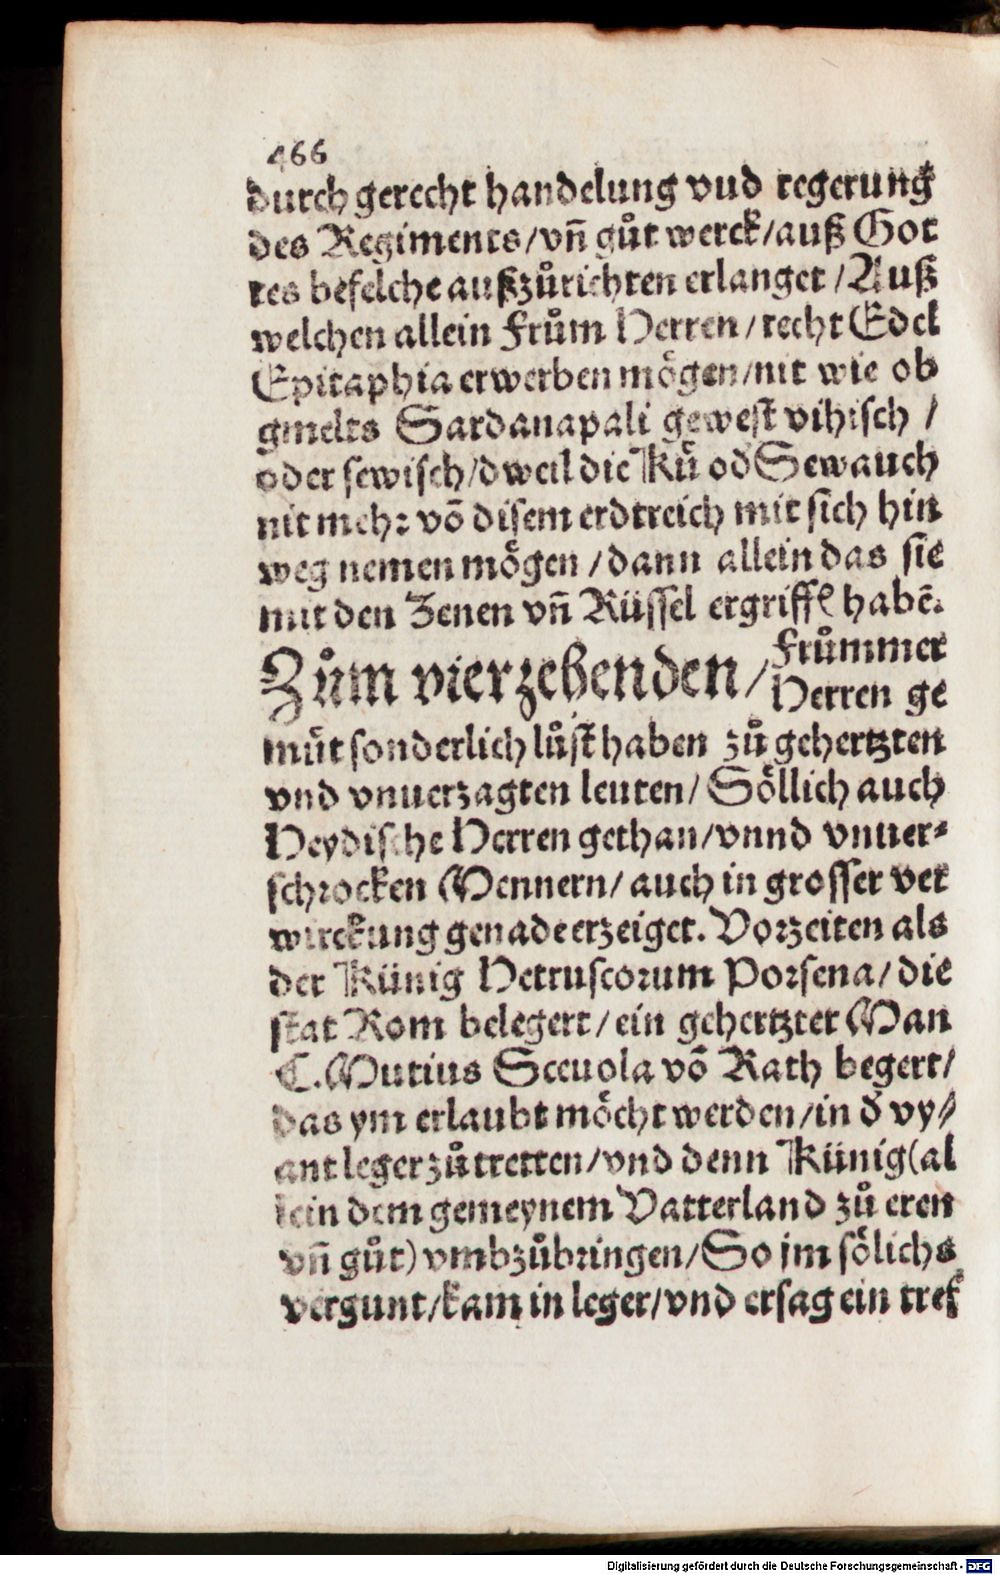 466
durch gerecht handelung vnd regerung
des Regiments/vñ gůt werck/auß Got
tes befelche außzůrichten erlanget/Auß
welchen allein Frům Herren/recht Edel
Epitaphia erwerben mögen/nit wie ob
gmelts Sardanapali gewest vihisch /
oder sewisch/dweil die Kü od Sew auch
nit mehr võ disem erdtreich mit sich hin
weg nemen mögen /dann allein das sie
mit den Zenen vñ Rüssel ergriffē habē.
Zům vierzehenden/ Frůmmer
Herren ge
müt sonderlich lůst haben zů gehertzten
vnd vnuerzagten leuten/ Söllich auch
Heydische Herren gethan/vnnd vnuer-
schrocken Mennern/ auch in grosser ver
wirckung genade erzeiget. Vorzeiten als
der Künig Hetruscorum Porsena/die
stat Rom belegert/ein gehertzter Man
C. Mutius Sceuola võ Rath begert/
das ym erlaubt möcht werden/in d̕ vy/
ant leger zů tretten/vnd denn Künig(al
lein dem gemeynem Vatterland zů eren
vñ gůt) vmbzůbringen/So jm sölichs
vergunt/kam in leger/vnd ersag ein tref
Digitalisierung gefördert durch die Deutsche Forschungsgemeinschaft - DFG